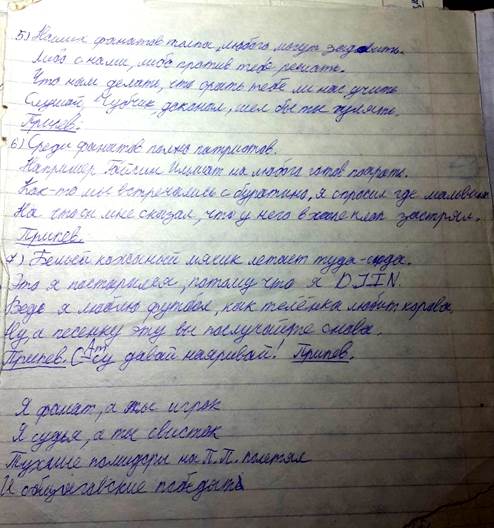 5) Наших фанатов толпа, любого могут задавить.
Либо с нами, либо против тебе решать.
Что нам делать, что орать тебе ли нас учить
Слушай Чубчик доконал, шёл бы ты гулять.
Припев.
6) Среди фанатов полно патриотов.
Например Гайсин Ильшат на любого готов поорать.
Как-то мы встречались с буратино, я спросил где мальвина
На что он мне сказал, что у него в хате клоп застрял.
Припев.
7) Белый кожаный мячик летает туда-сюда.
Это я постарался, потому что я DJIN.
Ведь я люблю футбол, как телёнка любит корова,
Ну, а песенку эту вы послушайте снова.
Припев. (Am су давай наяривай! Припев.
Я фанат, а ты игрок
Я судья, а ты свисток
Тухлые помидоры на П.П. полетят
И общаговские победят